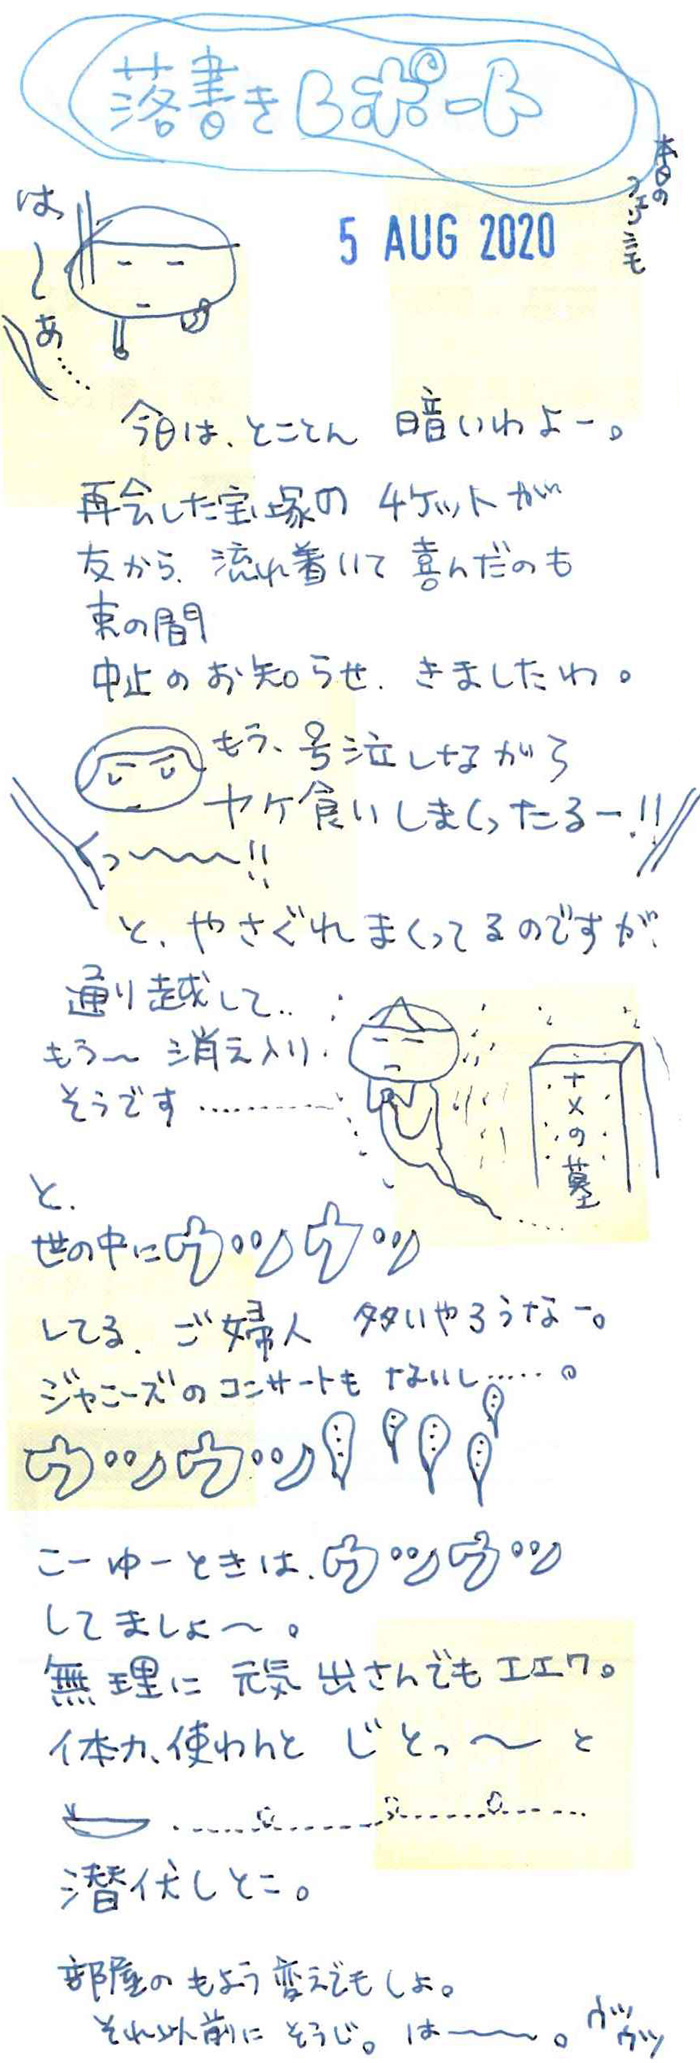 落書きレポート
本日の
5 AUG 2020
は、
〜
あ……
今日は、とことん 暗いわよー。
再会した宝塚の チケットが
友から、流れ着いて 喜んだのも
束の間
中止のお知らせ、きましたわ。
もう、号泣しながら
ヤケ食いしまくったるー!!
くっ〜〜〜!!
と、やさぐれまくってるのですが、
通り越して..
もう〜 消え入り
そうです…………
ナメの墓
と、
世の中にウツウツ
してる、ご婦人 多いやろうなー。
ジャニーズのコンサートも ないし……。
ウツウツ
こーゆーときは、ウツウツ
してましょ〜。
無理に 元気 出さんでもエエワ。
体力、使わんと じとっ〜と
潜伏しとこ。
部屋の もよう変えでもしよ。
それ以前に そうじ。 は〜〜。
ウツ
ウツ